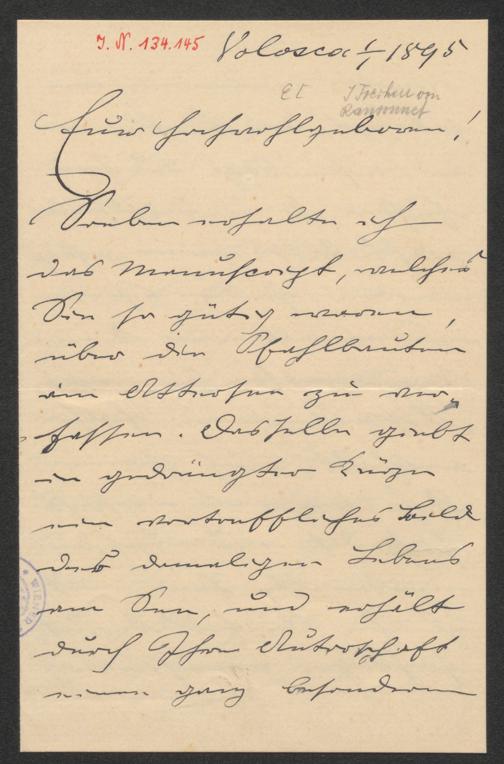 J. N. 134.145
Volosca 1/1 1895
J Freiherr von
Ransonnet
Euer Hochwohlgeboren!
Soeben erhalte ich
das Manuscript, welches
Sie so gütig waren,
über die Pfahlbauten
im Attersee zu ver-
fassen. Dasselbe giebt
in gedrängter Kürze
ein vortreffliches Bild
des damaligen Lebens
am See, und erhält
durch Ihre Autorschaft
einen ganz besonderen
WIENER